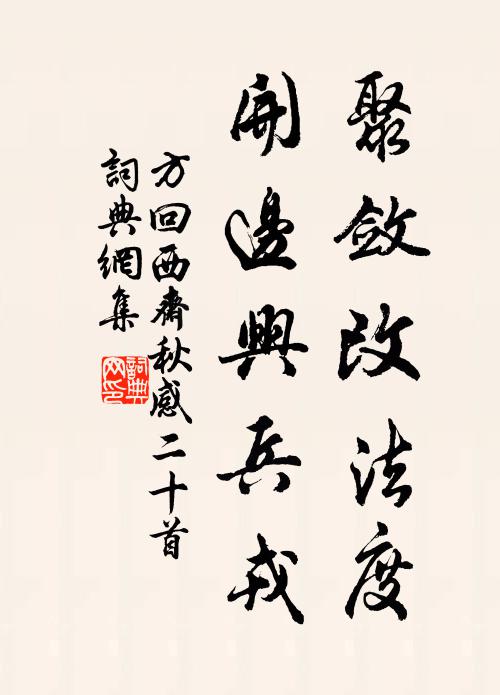 聚斂改法度
開邊興兵戎
方回西齋秋感二十首
詞典網集
詞典網印